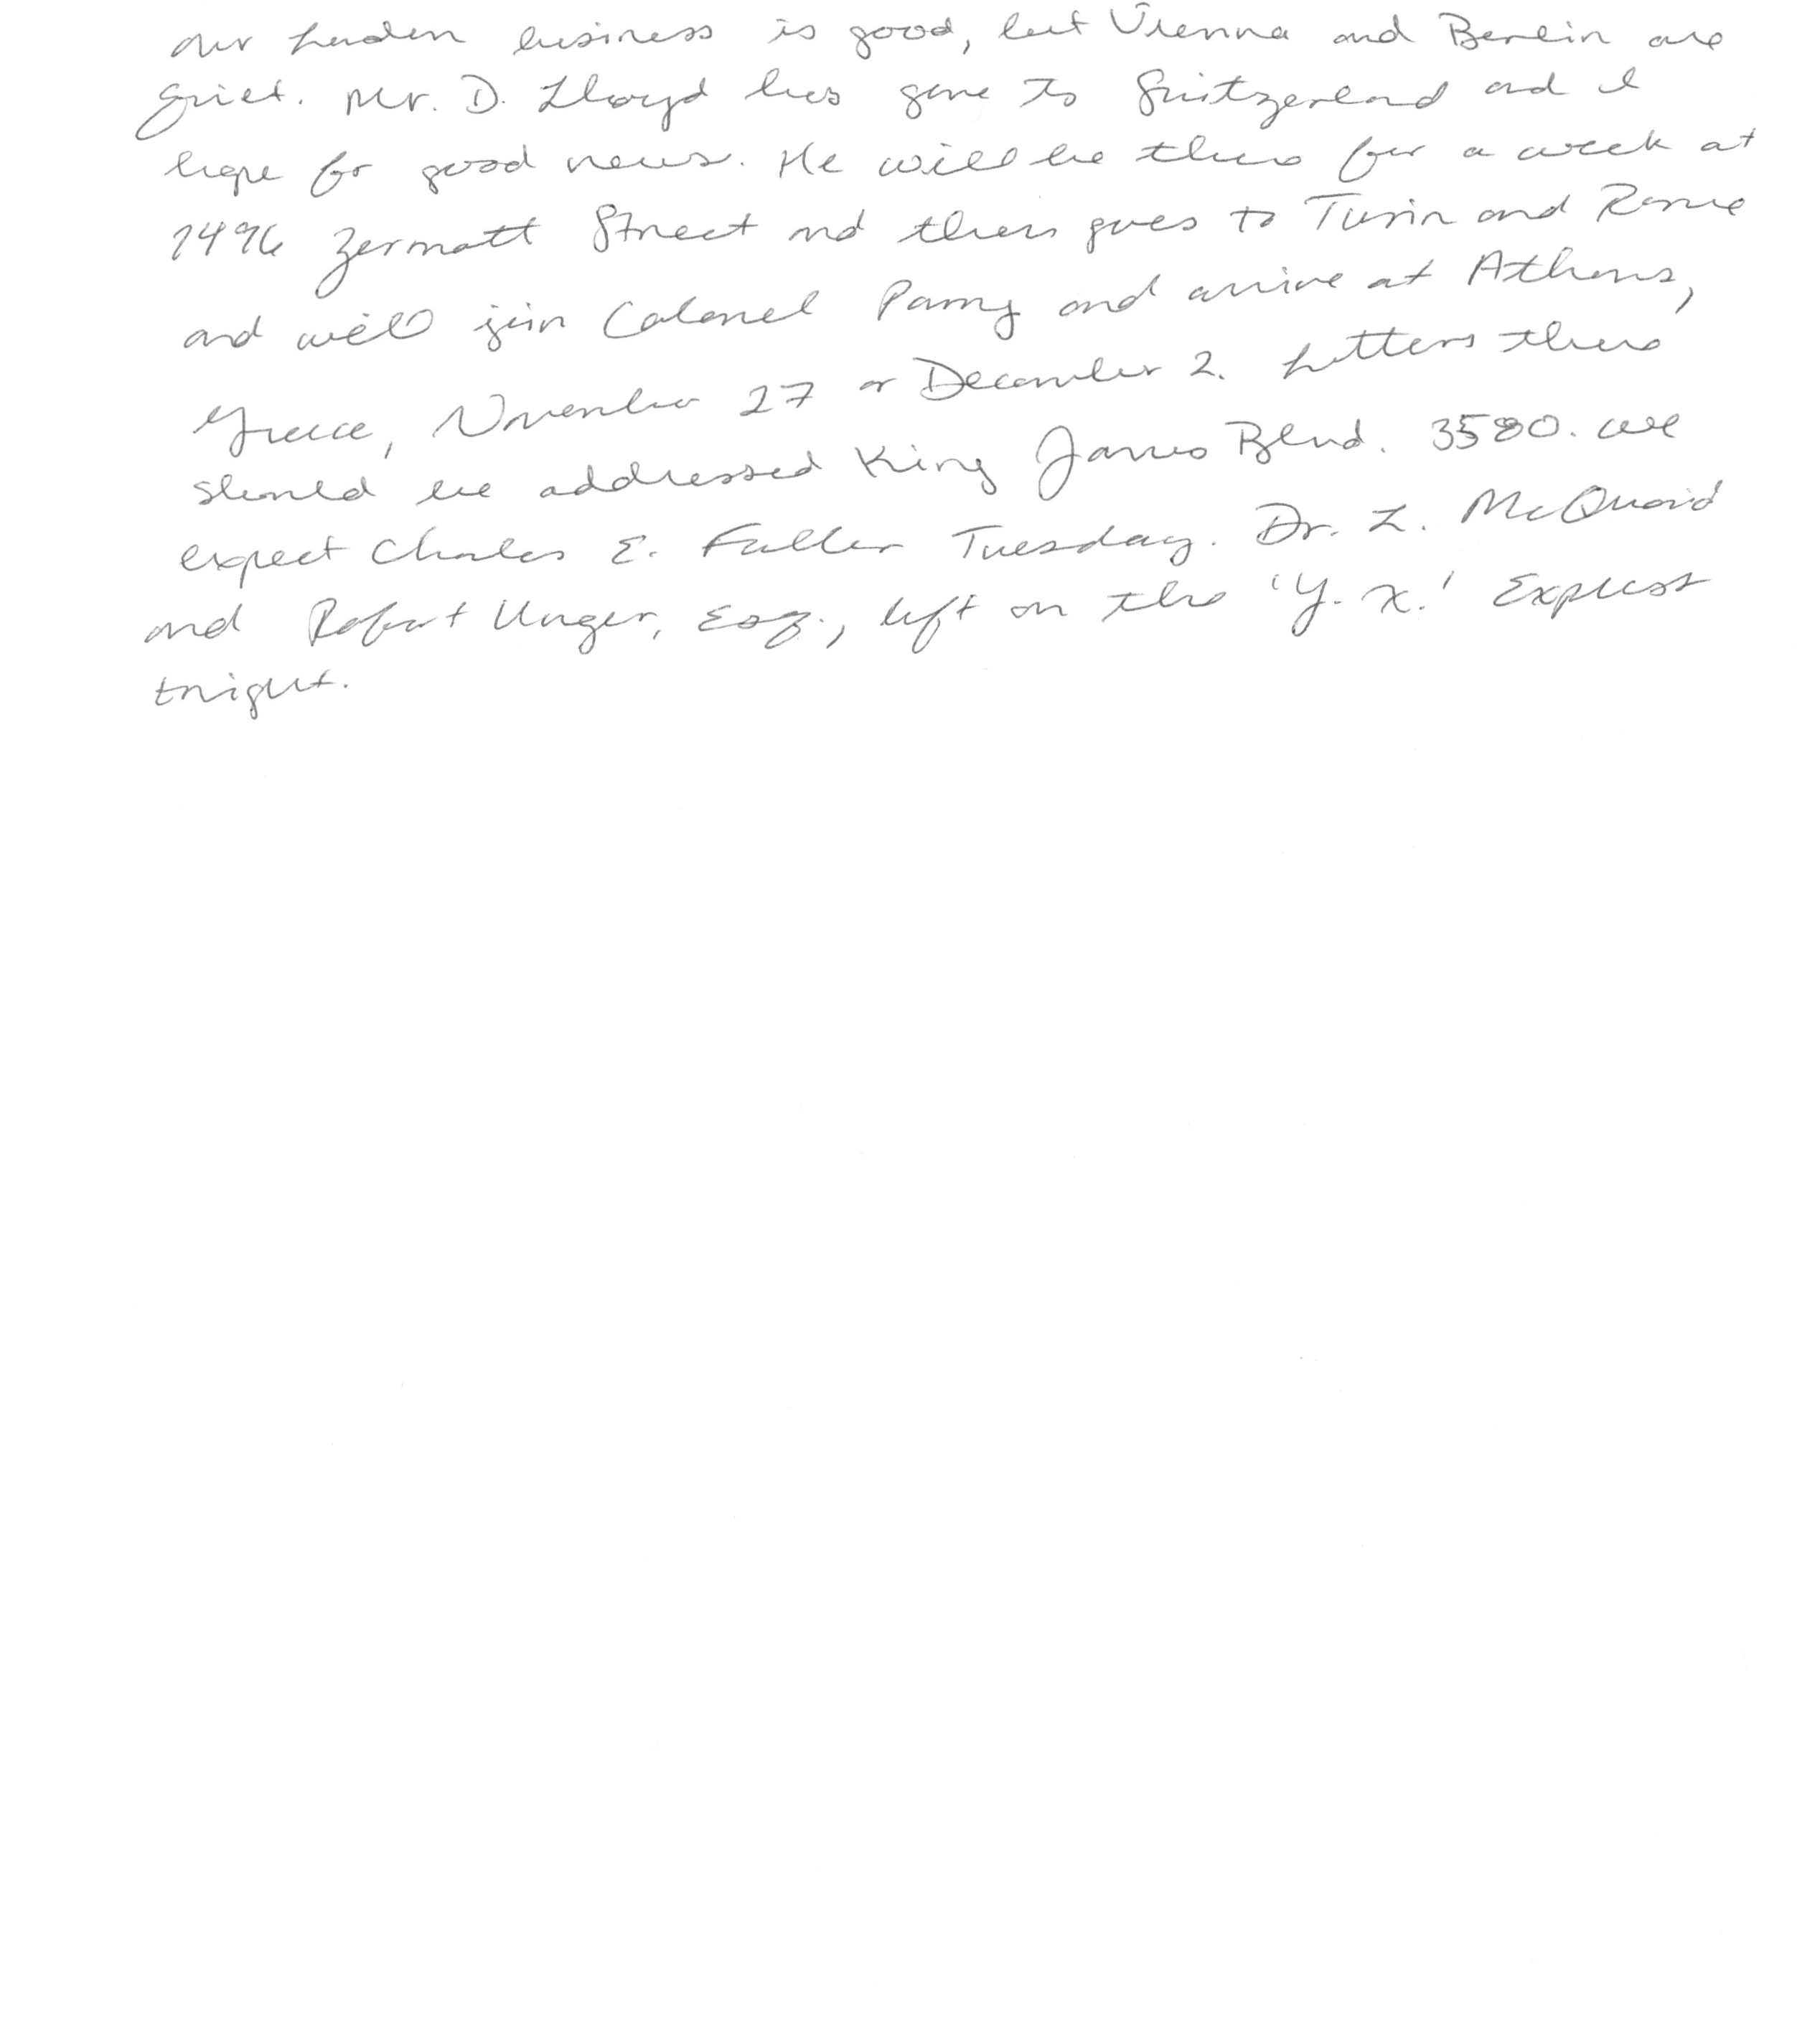 Our London business is good, but Vienna and Berlin are
quiet. Mr. D. Lloyd has gone to Switzerland and I
hope for good news. He will be there for a week at
1496 Zermatt Street and then goes to Turin and Rome
and will join Colonel Parry and arrive at Athens,
Greece, November 27 or December 2. Letters there
should be addressed King James Blvd. 3580. We
expect Charles E. Fuller Tuesday. Dr. L. McQuaid
and Robert Unger, Esq., left on the 'Y. X.' Express
tonight.